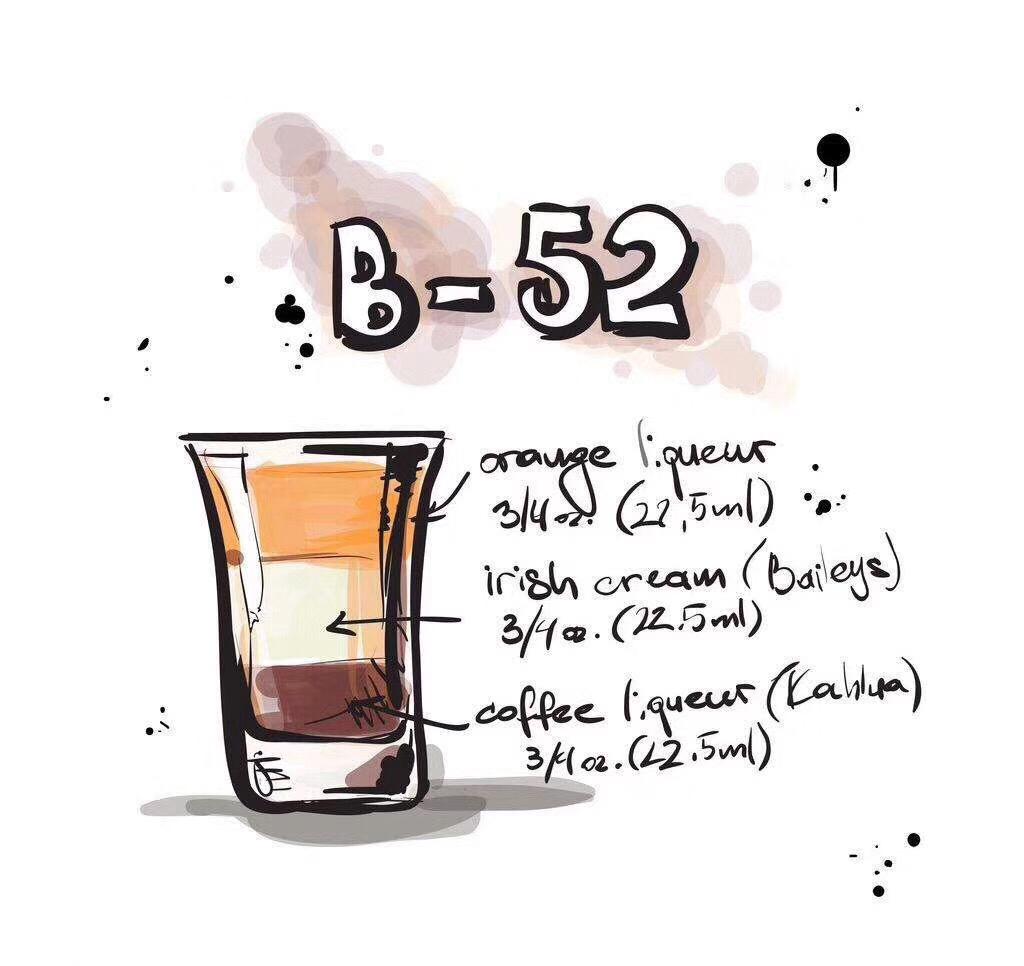 B-52
orange liqueur
3/4 oz. (22,5ml)
irish cream (Baileys)
3/4 oz. (22.5ml)
coffee liqueur (Kahlua)
3/4 oz. (22.5ml)